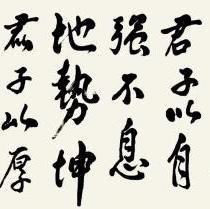 君子以自
强不息
地勢坤
君子以厚